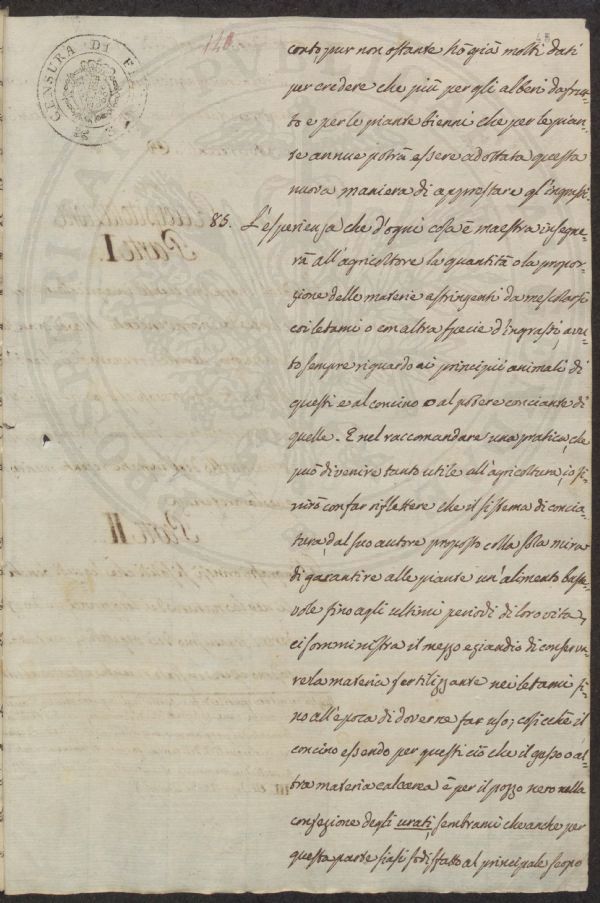 CENSURA DI F
140
conto pur non ostante ho già molti dati
per credere che più per gli alberi da frut=
to e per le piante bienni che per le pian=
te annue potrà essere adottata questa
nuova maniera di apprestare gl'ingrassi.
85. L'esperienza che d'ogni cosa è maestra insegne=
rà all'agricoltore la quantità o la propor=
zione delle materie astringenti da mescolarsi
coi letami o con altra specie d'Ingrassi, avu=
to sempre riguardo ai principii animali di
questi e al concino o al potere conciante di
quelle. E nel raccomandare una pratica, che
può divenire tanto utile all'agricoltura, io fi=
nirò con far riflettere che il sistema di concia=
tura, dal suo autore proposto colla sola mira
di garantire alle piante un'alimento baste=
vole fino agli ultimi periodi di loro vita,
ci somministra il mezzo eziandio di conserva=
re la materia fertilizzante nei letami fi=
no all'epoca di doverne far uso; così che il
concino essendo per questi ciò che il gesso o al=
tra materia calcarea è per il pozzo nero nella
confezione degli urati, sembrami che anche per
questa parte siasi sodisfatto al principale scopo